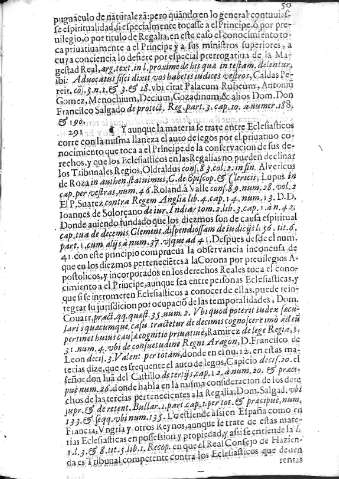 50
pugnáculo de naturaleza: pero quãndo en lo general continuisse
espiritualidad, si especialmente tocasse a el Principe, ò por privilegio,
ò por titulo de Regalia, en este caso el conocimiento toca
privatiuamente a el Principe y a sus ministros superiores, a
cuya conciencia lo defiere por especial prerrogatiua de la Magestad
Real, arg. text. in l. proxime de his quæ in testam. delentur,
ibi: Advocatus fisci dixit, vos habetis iudices vestros, Caldas Pereir.
conf. 3. n. 2. & 3. & 28. vbi citat Palacum Rubeum, Antonium
Gomez, Menochium, Decium, Gozadinum, & alios Dom. Don
Francisco Salgado de protect. Reg. part. 3. cap. 10. a numer. 188,
& 190.
291 ¶ Y aunque la materia se trate entre Eclesiasticos
corre con la misma llaneza el auto de legos por el priuatiuo conocimiento
que toca a el Principe de la conservacion de sus derechos,
y que los Eclesiasticos en las Regalias no pueden declinar
los Tribunales Regios, Oldraldus conf. 83. col. 2. in fin. Alvericus
de Roza in authen. statuimus, C. de Episcop. & Clericis, Lupus in
cap. per vestras, num. 46. Roland à Valle conf. 89. num. 28. vol. 2
El P. Suarez contra Regem Angliæ lib. 4. cap. 14. num. 13. D. D.
Joannes de Solorçano de iur. Indiar. tom. 2. lib. 3. cap. 1. a n. 42,
Donde auiendo fundado que los diezmos son de causa espiritual
cap. tua de decimis Clement. dispendiosam de iudicijs l. 56. tit. 6.
part. 1. cum alijs à num. 37. vsque ad 41. Despues desde el num.
41. con este principio comprueua la observancia inconcusa de
que en los diezmos pertenecientes a la Corona por preuilegios Apostolicos,
y incorporados en los derechos Reales toca el conocimiento
a el Principe, aunque sea entre personas Eclesiasticas, y
que si se intrometen Eclesiasticos a conocer de ellas, puede reintegrar
su jurisdiccion por ocupacion de las temporalidades, Dom.
Couarr. pract. qq. quæst. 35. num. 2. Vbi quod poterit iudex sæcularis
quacumque, casu tractetur de decimis cognoscere imò ad eũ
pertinet huius causæ cognitio priuatiuè, Ramirez de lege Regia, §.
31. num. 4. vbi de consuetudine Regni Aragon, D. Francisco de
Leon decis. 3. Valent. per totam, donde en el nu. 12. en estas materias
dize, que es frequente el auto de legos, Capicio decis. 20. el
señor don luà del Castillo de tertijs, cap. 12. à num. 20. & præcipuè
num. 26. donde habla en la misma consideracion de los derechos
de las tercias pertenecientes a la Regalia; Dom. Salgad. vbi
supr. & de retent. Bullar. 1. part. cap. 1. per tot. & præcipuè, num.
133. & seqq. vbi num. 135. Lo estiende assi en España como en
Francia, Vngria y otros Reynos, aunque se trate de estas materias
Eclesiasticas en possession y propiedad, y assi se entiende la l.
1. l. 3. & 8. tit. 5. lib. 1. Recop. en que el Real Consejo de Hazienda
es Tribunal competente contra los Eclesiasticos que deuen
rentas